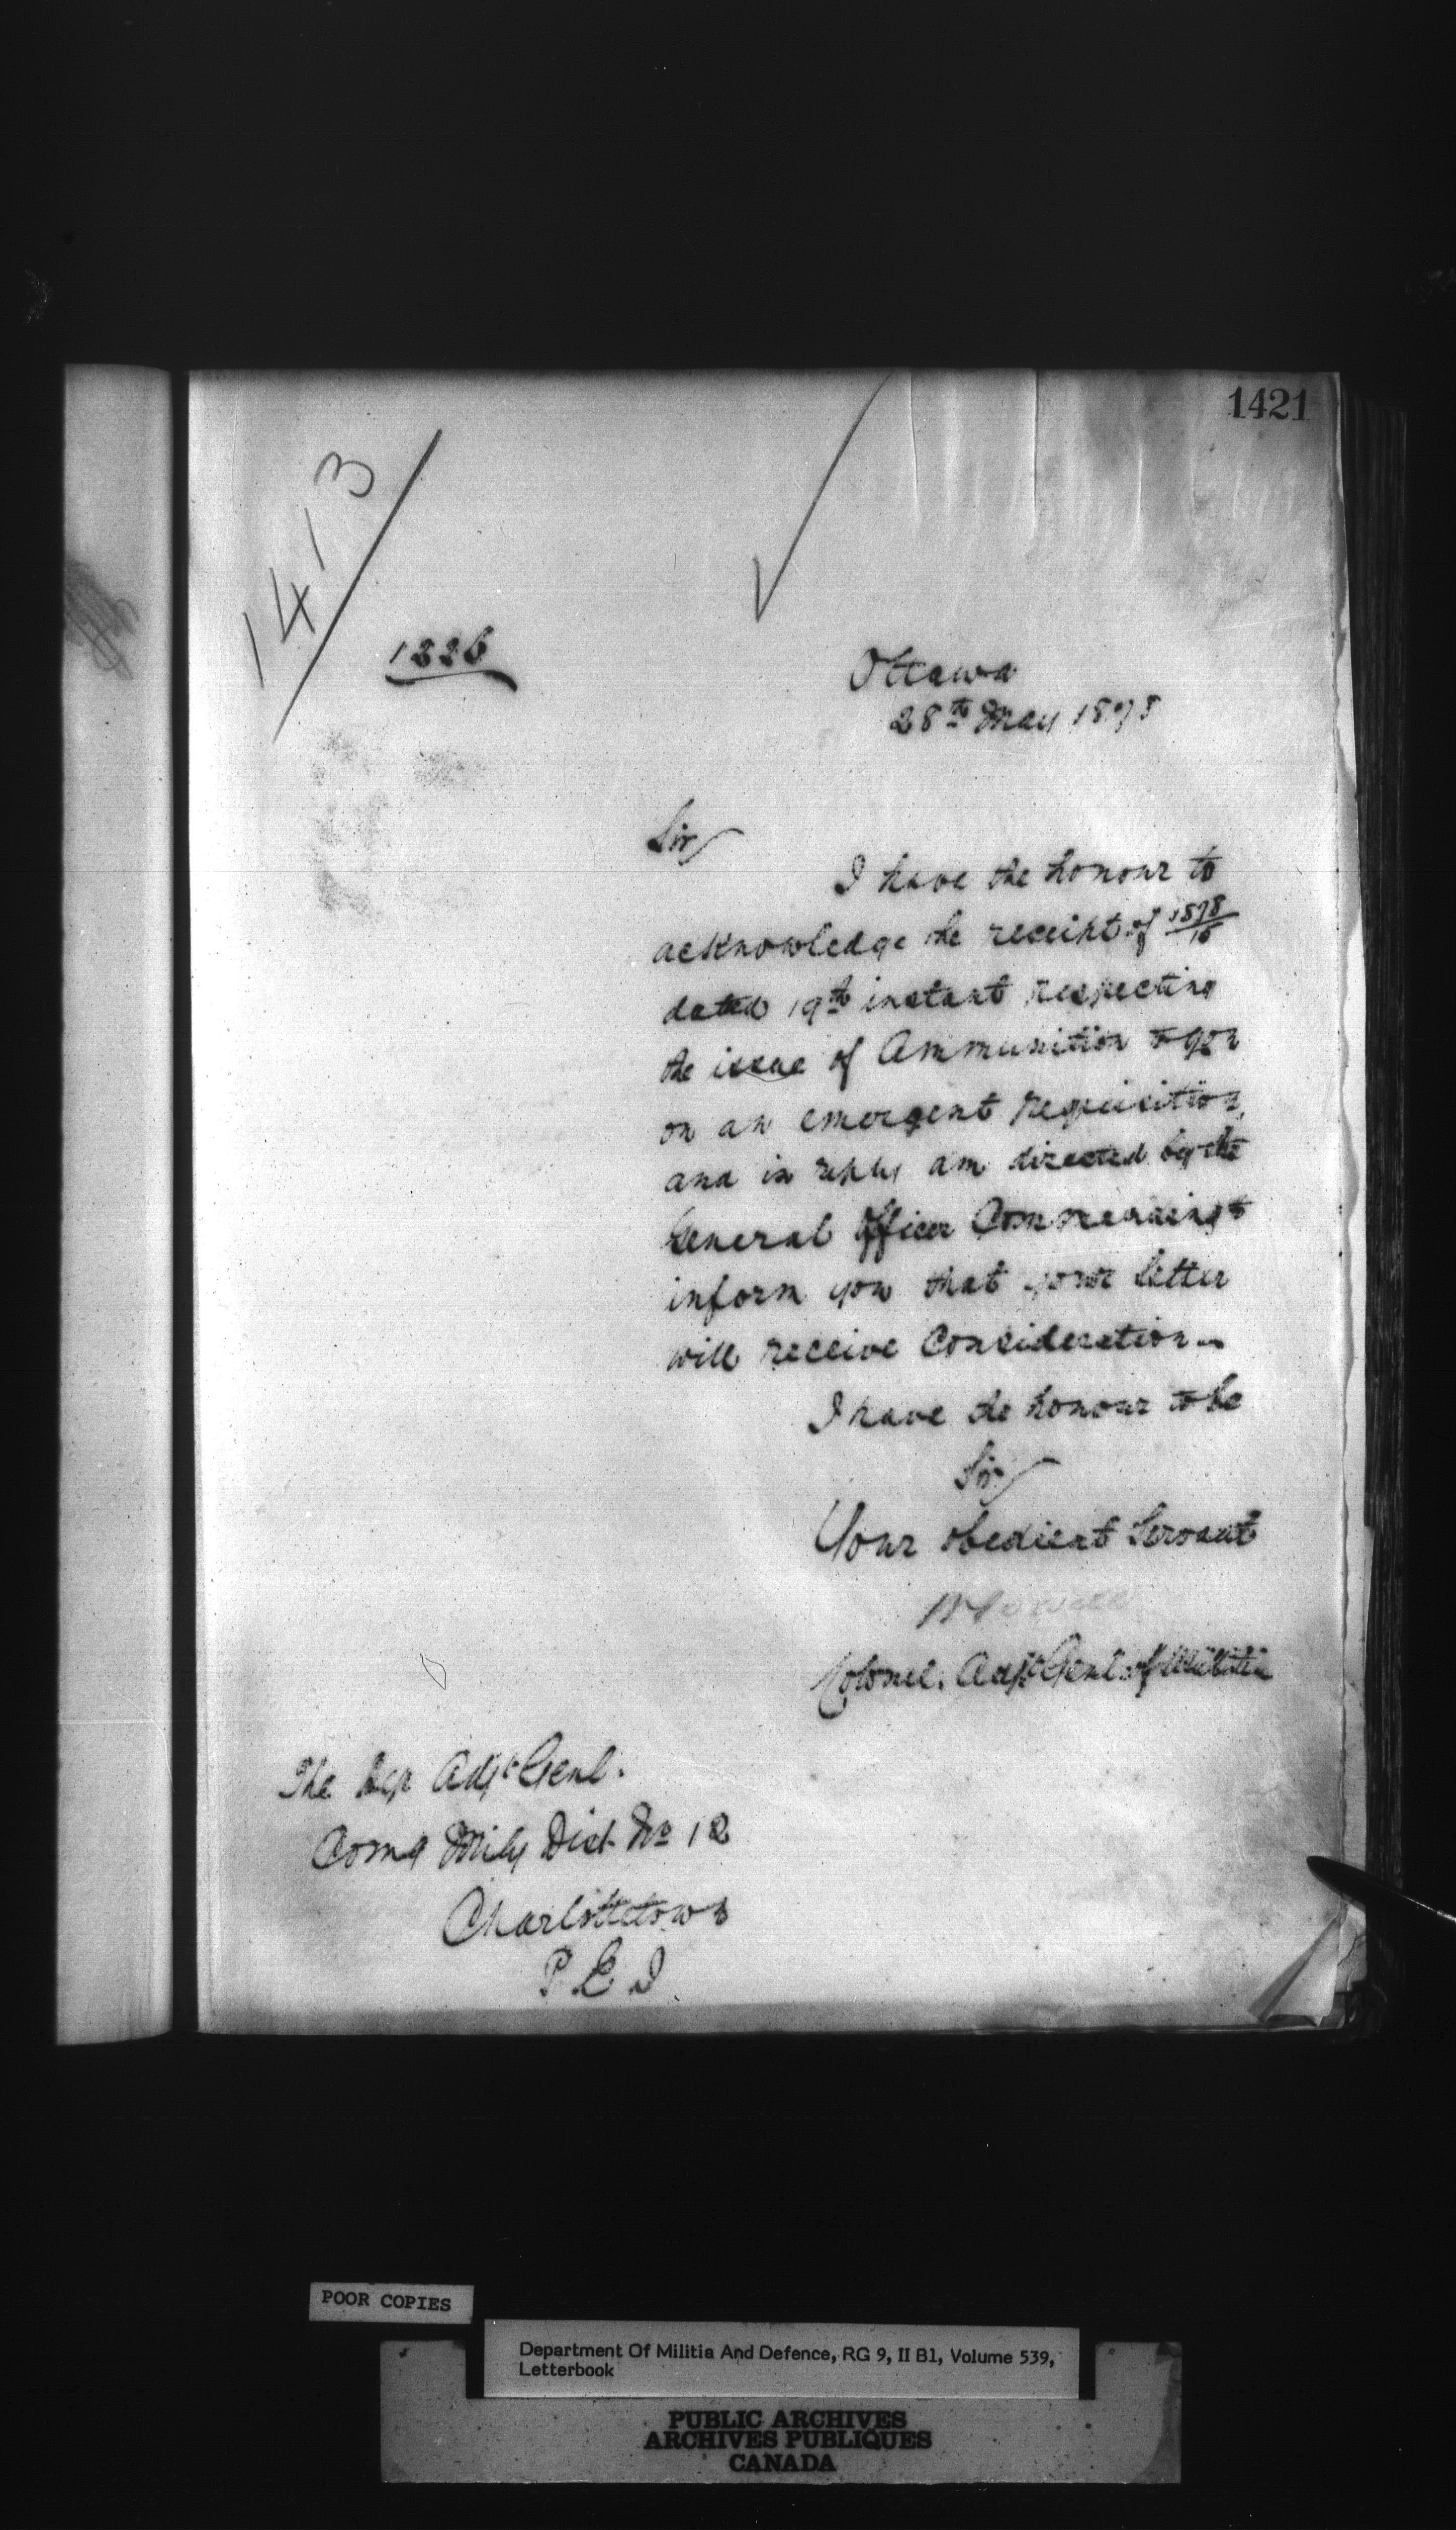 1421
1413
1226
Ottawa
28th May 1878
Sir
I have the honour to
acknowledge the receipt of 1878/16
dated 19th instant respecting
the issue of Ammunition to you
on an emergent requisition,
and in reply am directed by the
General Officer Commanding to
inform you that your letter
will receive Consideration.
I have the honour to be
Sir
Your obedient Servant
W Powell
Colonel. Adjt Genl. of Militia
The Dep Adjt Genl.
Comg Mily Dist No 12
Charlottetown
P.E.I.
POOR COPIES
Department Of Militia And Defence, RG 9, II B1, Volume 539,
Letterbook
PUBLIC ARCHIVES
ARCHIVES PUBLIQUES
CANADA